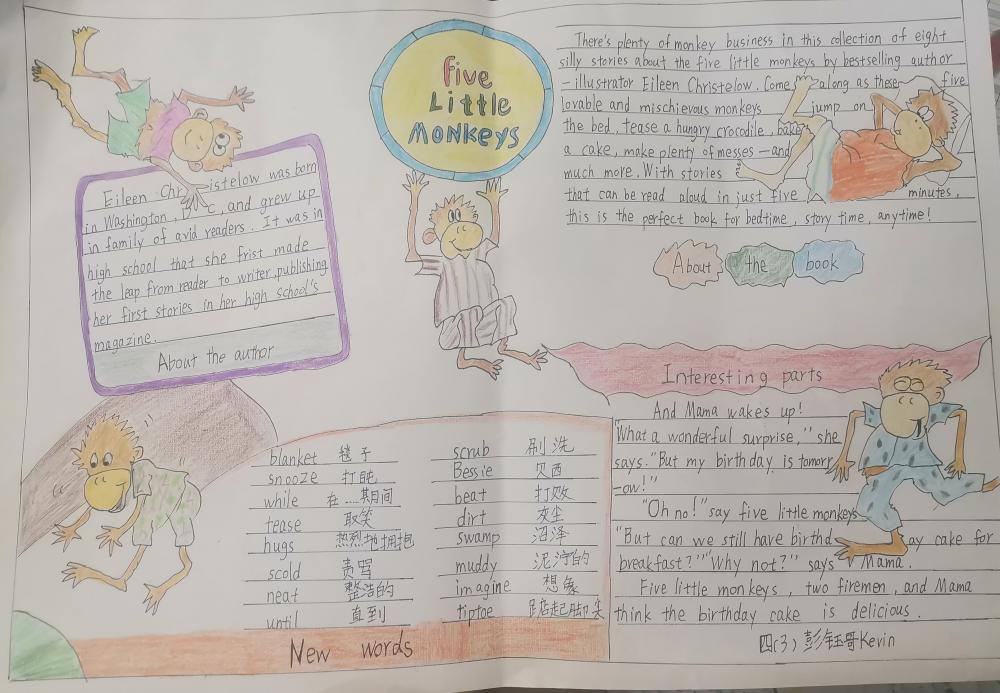 Five
Little
Monkeys
Eileen Christelow was born
in Washington, D C, and grew up
in family of avid readers. It was in
high school that she frist made
the leap from reader to writer, publishing
her first stories in her high school's
magazine.
About the author
There's plenty of monkey business in this collection of eight
silly stories about the five little monkeys by bestselling author
–illustrator Eileen Christelow. Come along as these five
lovable and mischievous monkeys jump on
the bed, tease a hungry crocodile, bake
a cake, make plenty of messes—and
much more. With stories
that can be read aloud in just five minutes,
this is the perfect book for bedtime, story time, anytime!
About the book
blanket 毯子
snooze 打盹
while 在……期间
tease 取笑
hugs 热烈地拥抱
scold 责骂
neat 整洁的
until 直到
scrub 刷洗
Bessie 贝西
beat 打败
dirt 灰尘
swamp 沼泽
muddy 泥泞的
imagine 想象
tiptoe 踮起脚尖
New words
Interesting parts
And Mama wakes up!
"What a wonderful surprise," she
says. "But my birthday is tomorr
-ow!"
"Oh no!" say five little monkeys
"But can we still have birthday cake for
breakfast?" "Why not?" says Mama.
Five little monkeys, two firemen, and Mama
think the birthday cake is delicious.
四(3) 彭钰哥 Kevin